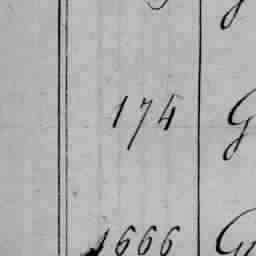 174 G
1666 G